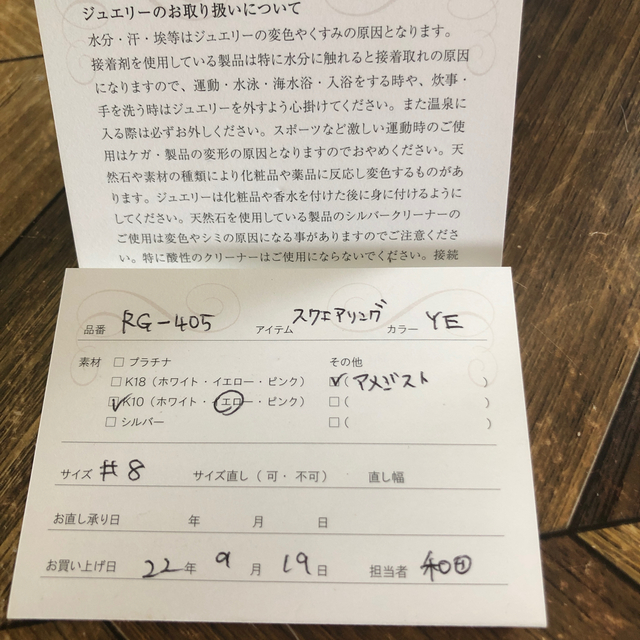 ジュエリーのお取り扱いについて
水分・汗・埃等はジュエリーの変色やくすみの原因となります。
接着剤を使用している製品は特に水分に触れると接着取れの原因
になりますので、運動・水泳・海水浴・入浴をする時や、炊事・
手を洗う時はジュエリーを外すよう心掛けてください。また温泉に
入る際は必ずお外しください。スポーツなど激しい運動時のご使
用はケガ・製品の変形の原因となりますのでおやめください。天
然石や素材の種類により化粧品や薬品に反応し変色するものがあ
ります。ジュエリーは化粧品や香水を付けた後に身に付けるように
してください。天然石を使用している製品のシルバークリーナーの
ご使用は変色やシミの原因になる事がありますのでご注意くださ
い。特に酸性のクリーナーはご使用にならないでください。接続
品番 RG-405 アイテム スクエアリング カラー YE
素材 □ プラチナ その他
□ K18（ホワイト・イエロー・ピンク） ☑（アメジスト ）
☑ K10（ホワイト・イエロー・ピンク） □（ ）
□ シルバー □（ ）
サイズ #8 サイズ直し（可・不可） 直し幅
お直し承り日 年 月 日
お買い上げ日 22年 9月 19日 担当者 和田